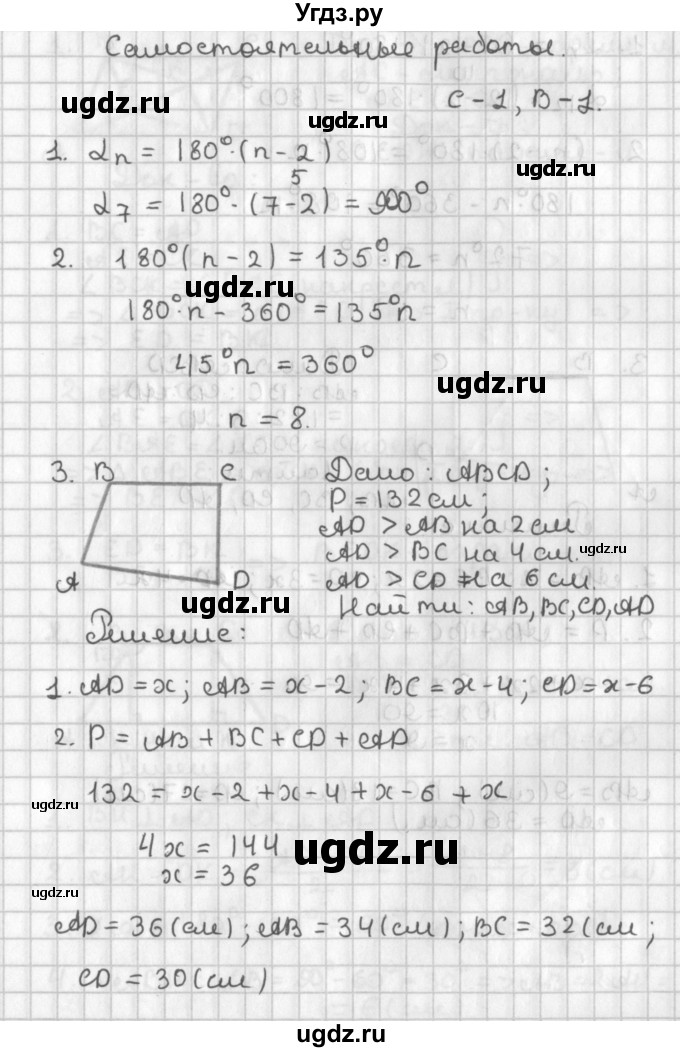 Угдз.ру
Самостоятельные работы.
ugdz.ru
ugdz.ru
С-1, В-1.
1. αn = 180°·(n-2)
ugdz.ru
5
α7 = 180°·(7-2) = 900°
2. 180°(n-2) = 135°·n
ugdz.ru
180°·n - 360° = 135°n
45°n = 360°
ugdz.ru
n = 8.
3. B C
A D
Дано: ABCD;
P = 132 см;
AD > AB на 2 см
AD > BC на 4 см.
AD > CD на 6 см
ugdz.ru
Найти: AB, BC, CD, AD
Решение:
1. AD = x; AB = x-2; BC = x-4; CD = x-6
2. P = AB + BC + CD + AD
ugdz.ru
132 = x-2+x-4+x-6+x
4x = 144
ugdz.ru
x = 36
ugdz.ru
AD = 36(см); AB = 34(см); BC = 32(см;
CD = 30(см)
ugdz.ru